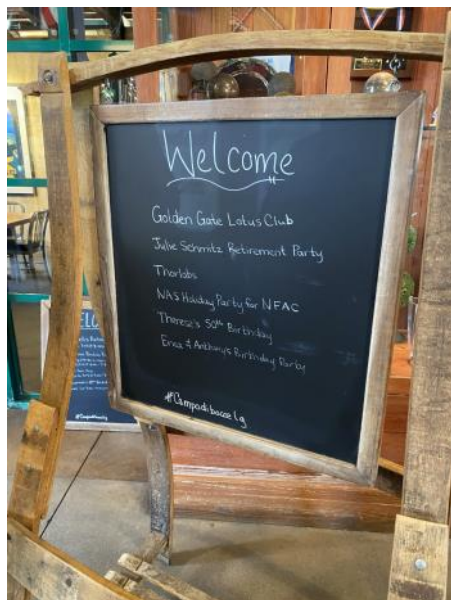 Welcome
Golden Gate Lotus Club
Julie Schmitz Retirement Party
Thorlabs
NAS Holiday Party for NFAC
Therese's 50th Birthday
Erica & Anthony's Birthday Party
#Campodiboccelg